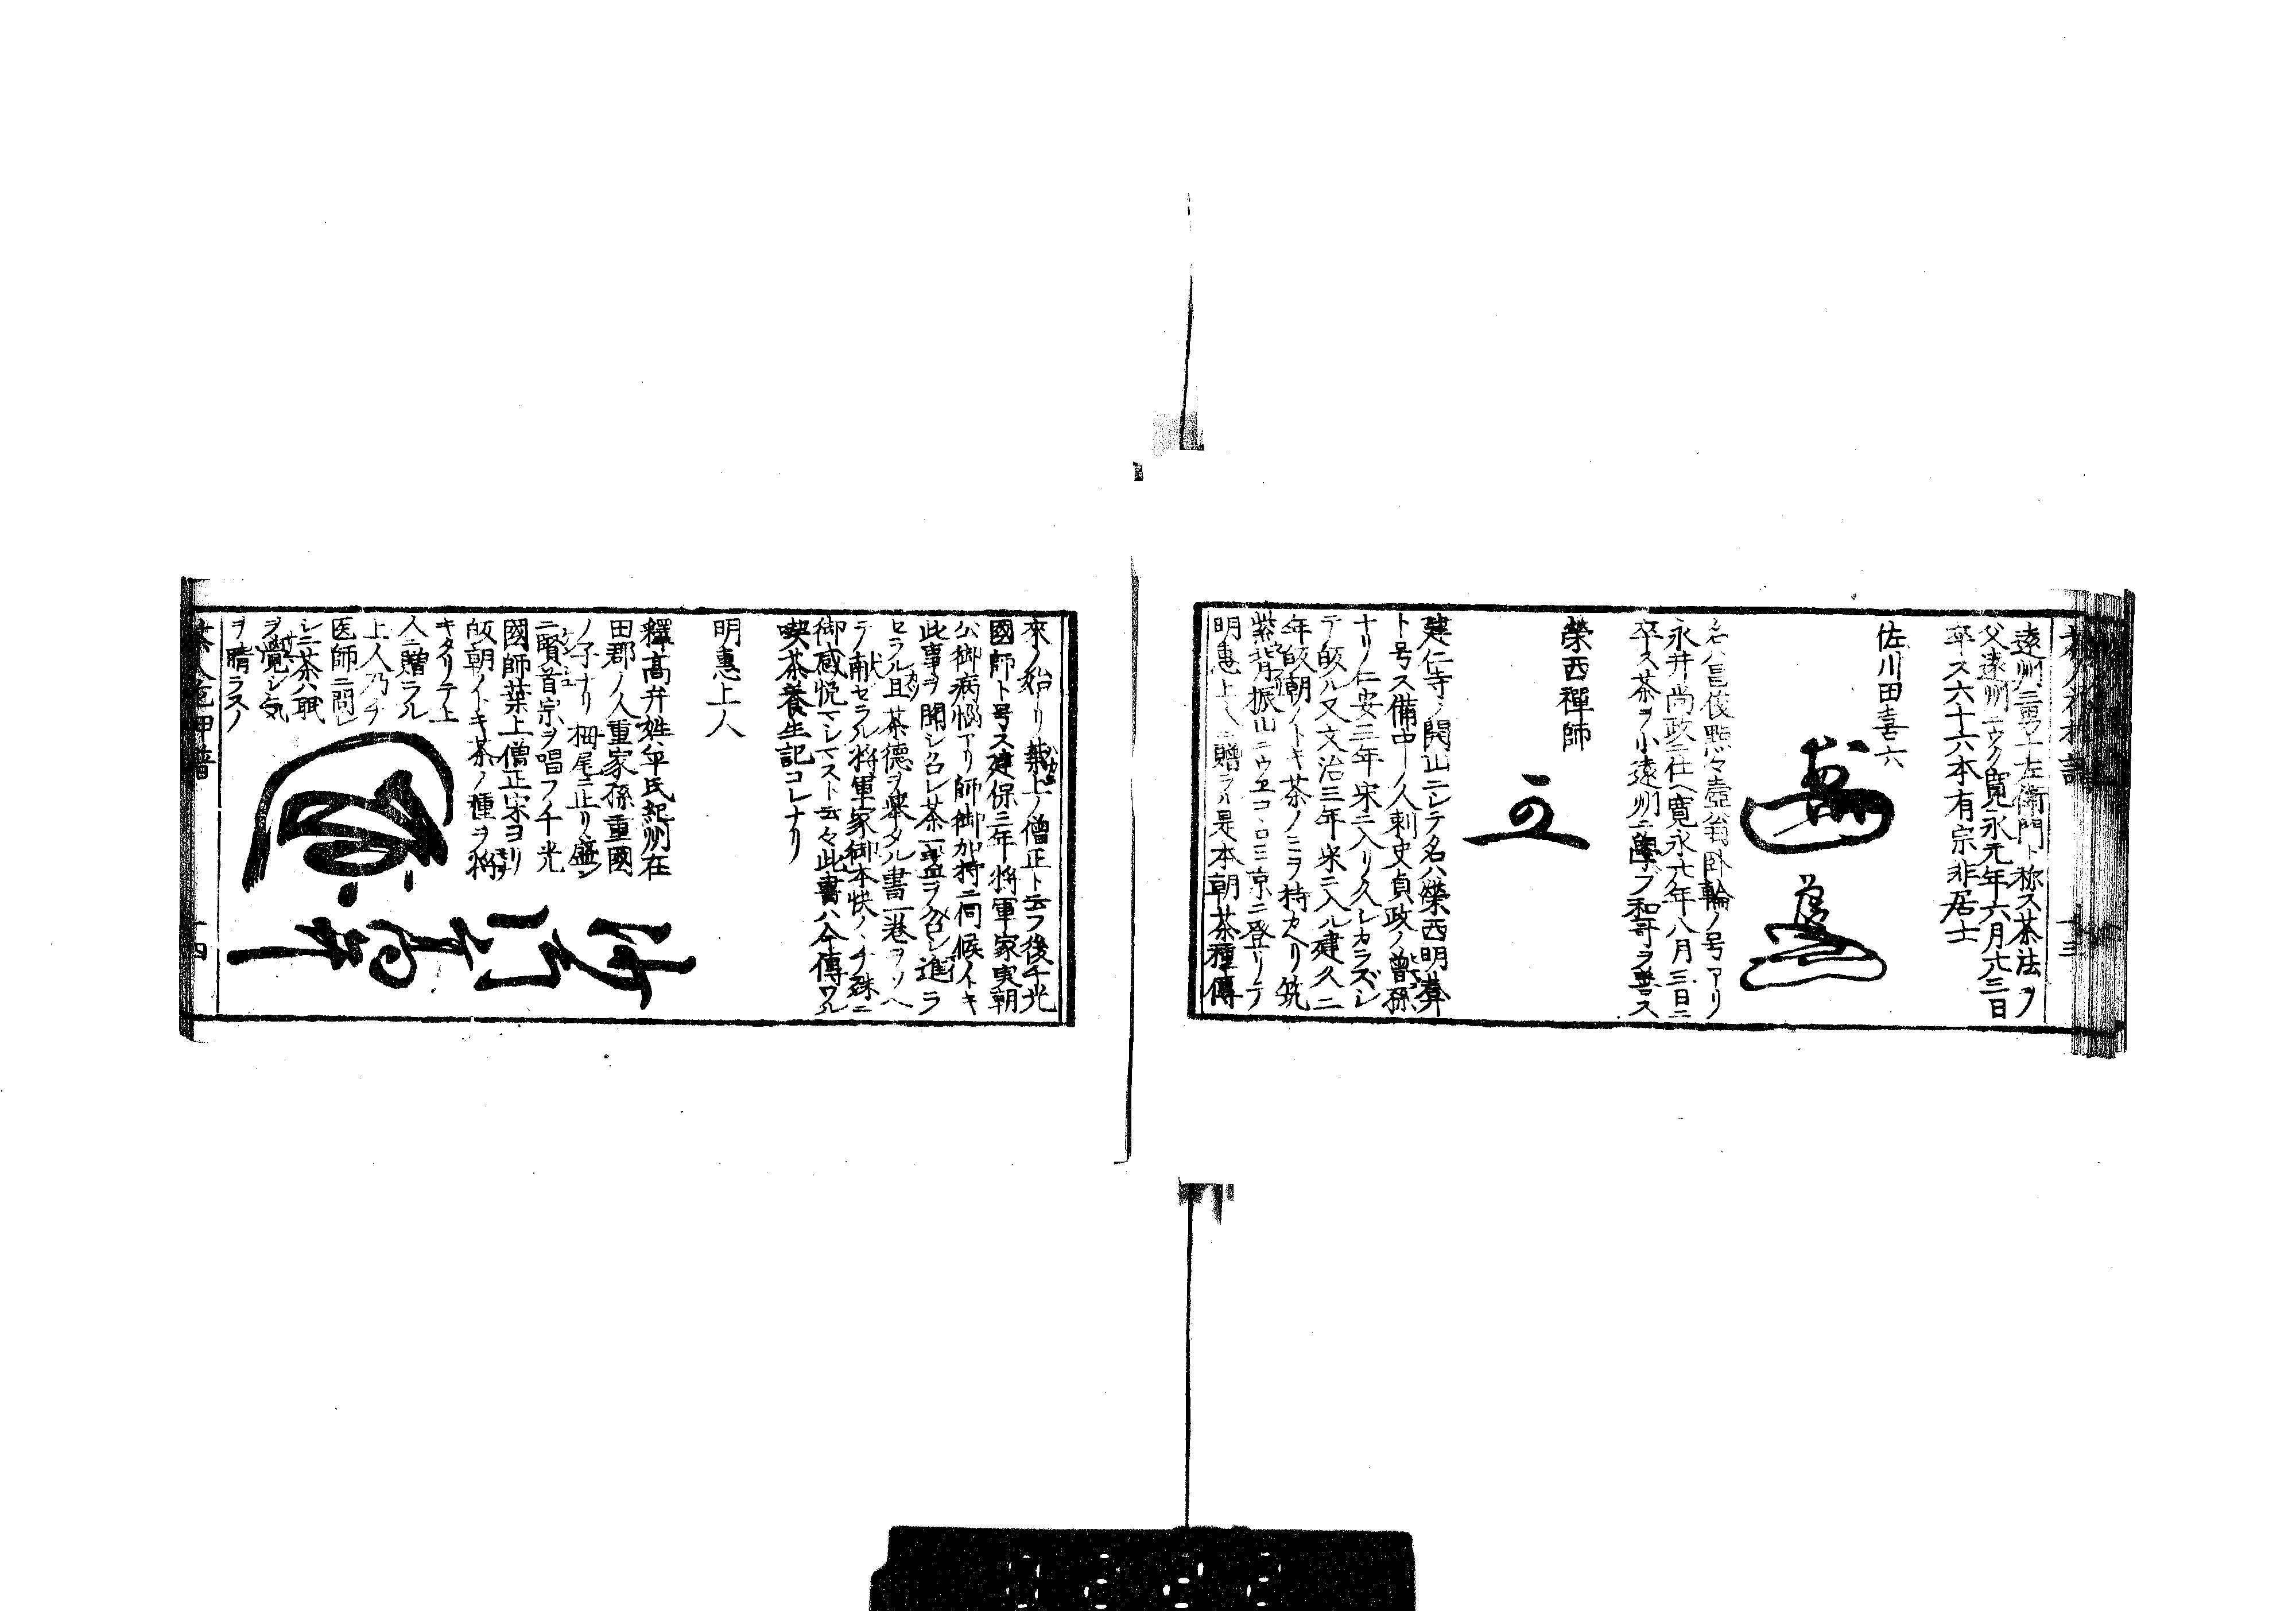 遠州三男十左衛門ト称ス茶法ヲ
父遠州ニウク寛永元年六月六三日
卒ス六十六本有宗非居士
佐川田喜六
名昌俊黙々壺翁卧輪ノ号アリ
永井尚政ニ仕ヘ寛永元年八月三日ニ
卒ス茶ヲ小遠州ニ學フ和哥ヲ善ス
榮西禅師
建仁寺ノ開山ニシテ名ハ榮西明菴
ト号ス備中ノ人刺史貞政ノ曽孫
ナリ仁安三年宋ニ入リ久シカラズシ
テ皈ル又文治三年宋ニ入ル建久二
年皈朝ノトキ茶ノミヲ持カヘリ筑
紫背振山ニウユコヽロミ京ニ登リテ
明惠上人ニ贈ラル是本朝茶種傳
來ノ始ナリ葉上ノ僧正ト云フ後千光
國師ト号ス建保二年将軍家実朝
公御病悩アリ師御加持ニ伺候ノトキ
此事ヲ聞シ召レ茶一盞ヲメシ進ラ
セラル且茶徳ヲ挙タル書一巻ヲソヘ
テ献セラル将軍家御本快ノヽチ殊ニ
御感悦マシマスト云々此書ハ今傳ワル
喫茶養生記コレナリ
明惠上人
釋高弁姓平氏紀州在
田郡ノ人重家孫重國
ノ子ナリ栂尾ニ止リ盛ン
ニ賢首宗ヲ唱フ千光
國師葉上僧正宋ヨリ
皈朝ノトキ茶ノ種ヲ将
キタリテ上
人ニ贈ラル
上人乃チ
医師ニ問レ
シニ茶ハ眠
ヲ覺シ気
ヲ晴ラスノ
茶人花押譜
十四